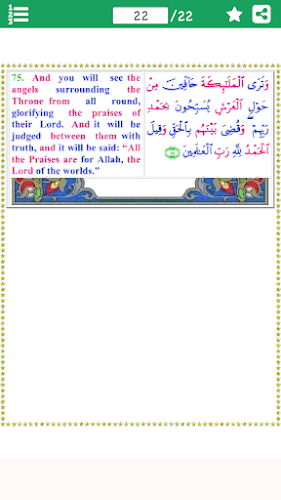 22 /22
75. And you will see the
angels surrounding the
Throne from all round,
glorifying the praises of
their Lord. And it will be
judged between them with
truth, and it will be said: “All
the Praises are for Allah, the
Lord of the worlds.”
وَتَرَى ٱلْمَلَـٰٓئِكَةَ حَآفِّينَ مِنْ
حَوْلِ ٱلْعَرْشِ يُسَبِّحُونَ بِحَمْدِ
رَبِّهِمْ ۖ وَقُضِىَ بَيْنَهُم بِٱلْحَقِّ وَقِيلَ
ٱلْحَمْدُ لِلَّهِ رَبِّ ٱلْعَـٰلَمِينَ